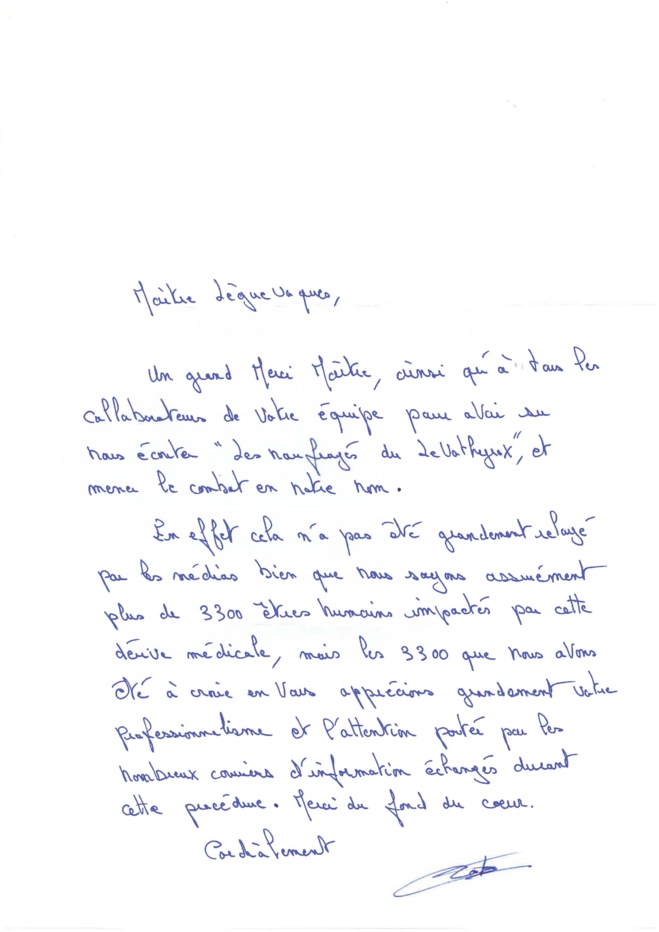 Maître Lèguevaques,
Un grand Merci Maître, ainsi qu'à tous les
collaborateurs de votre équipe pour avoir su
nous écouter "Les naufragés du LeVothyrox", et
mener le combat en notre nom.
En effet cela n'a pas été grandement relayé
par les médias bien que nous soyons assurément
plus de 3300 êtres humains impactés par cette
dérive médicale, mais les 3300 que nous avons
été à croire en Vous apprécions grandement votre
professionnelisme et l'attention portée par les
nombreux courriers d'information échangés durant
cette procédure. Merci du fond du coeur.
Cordialement